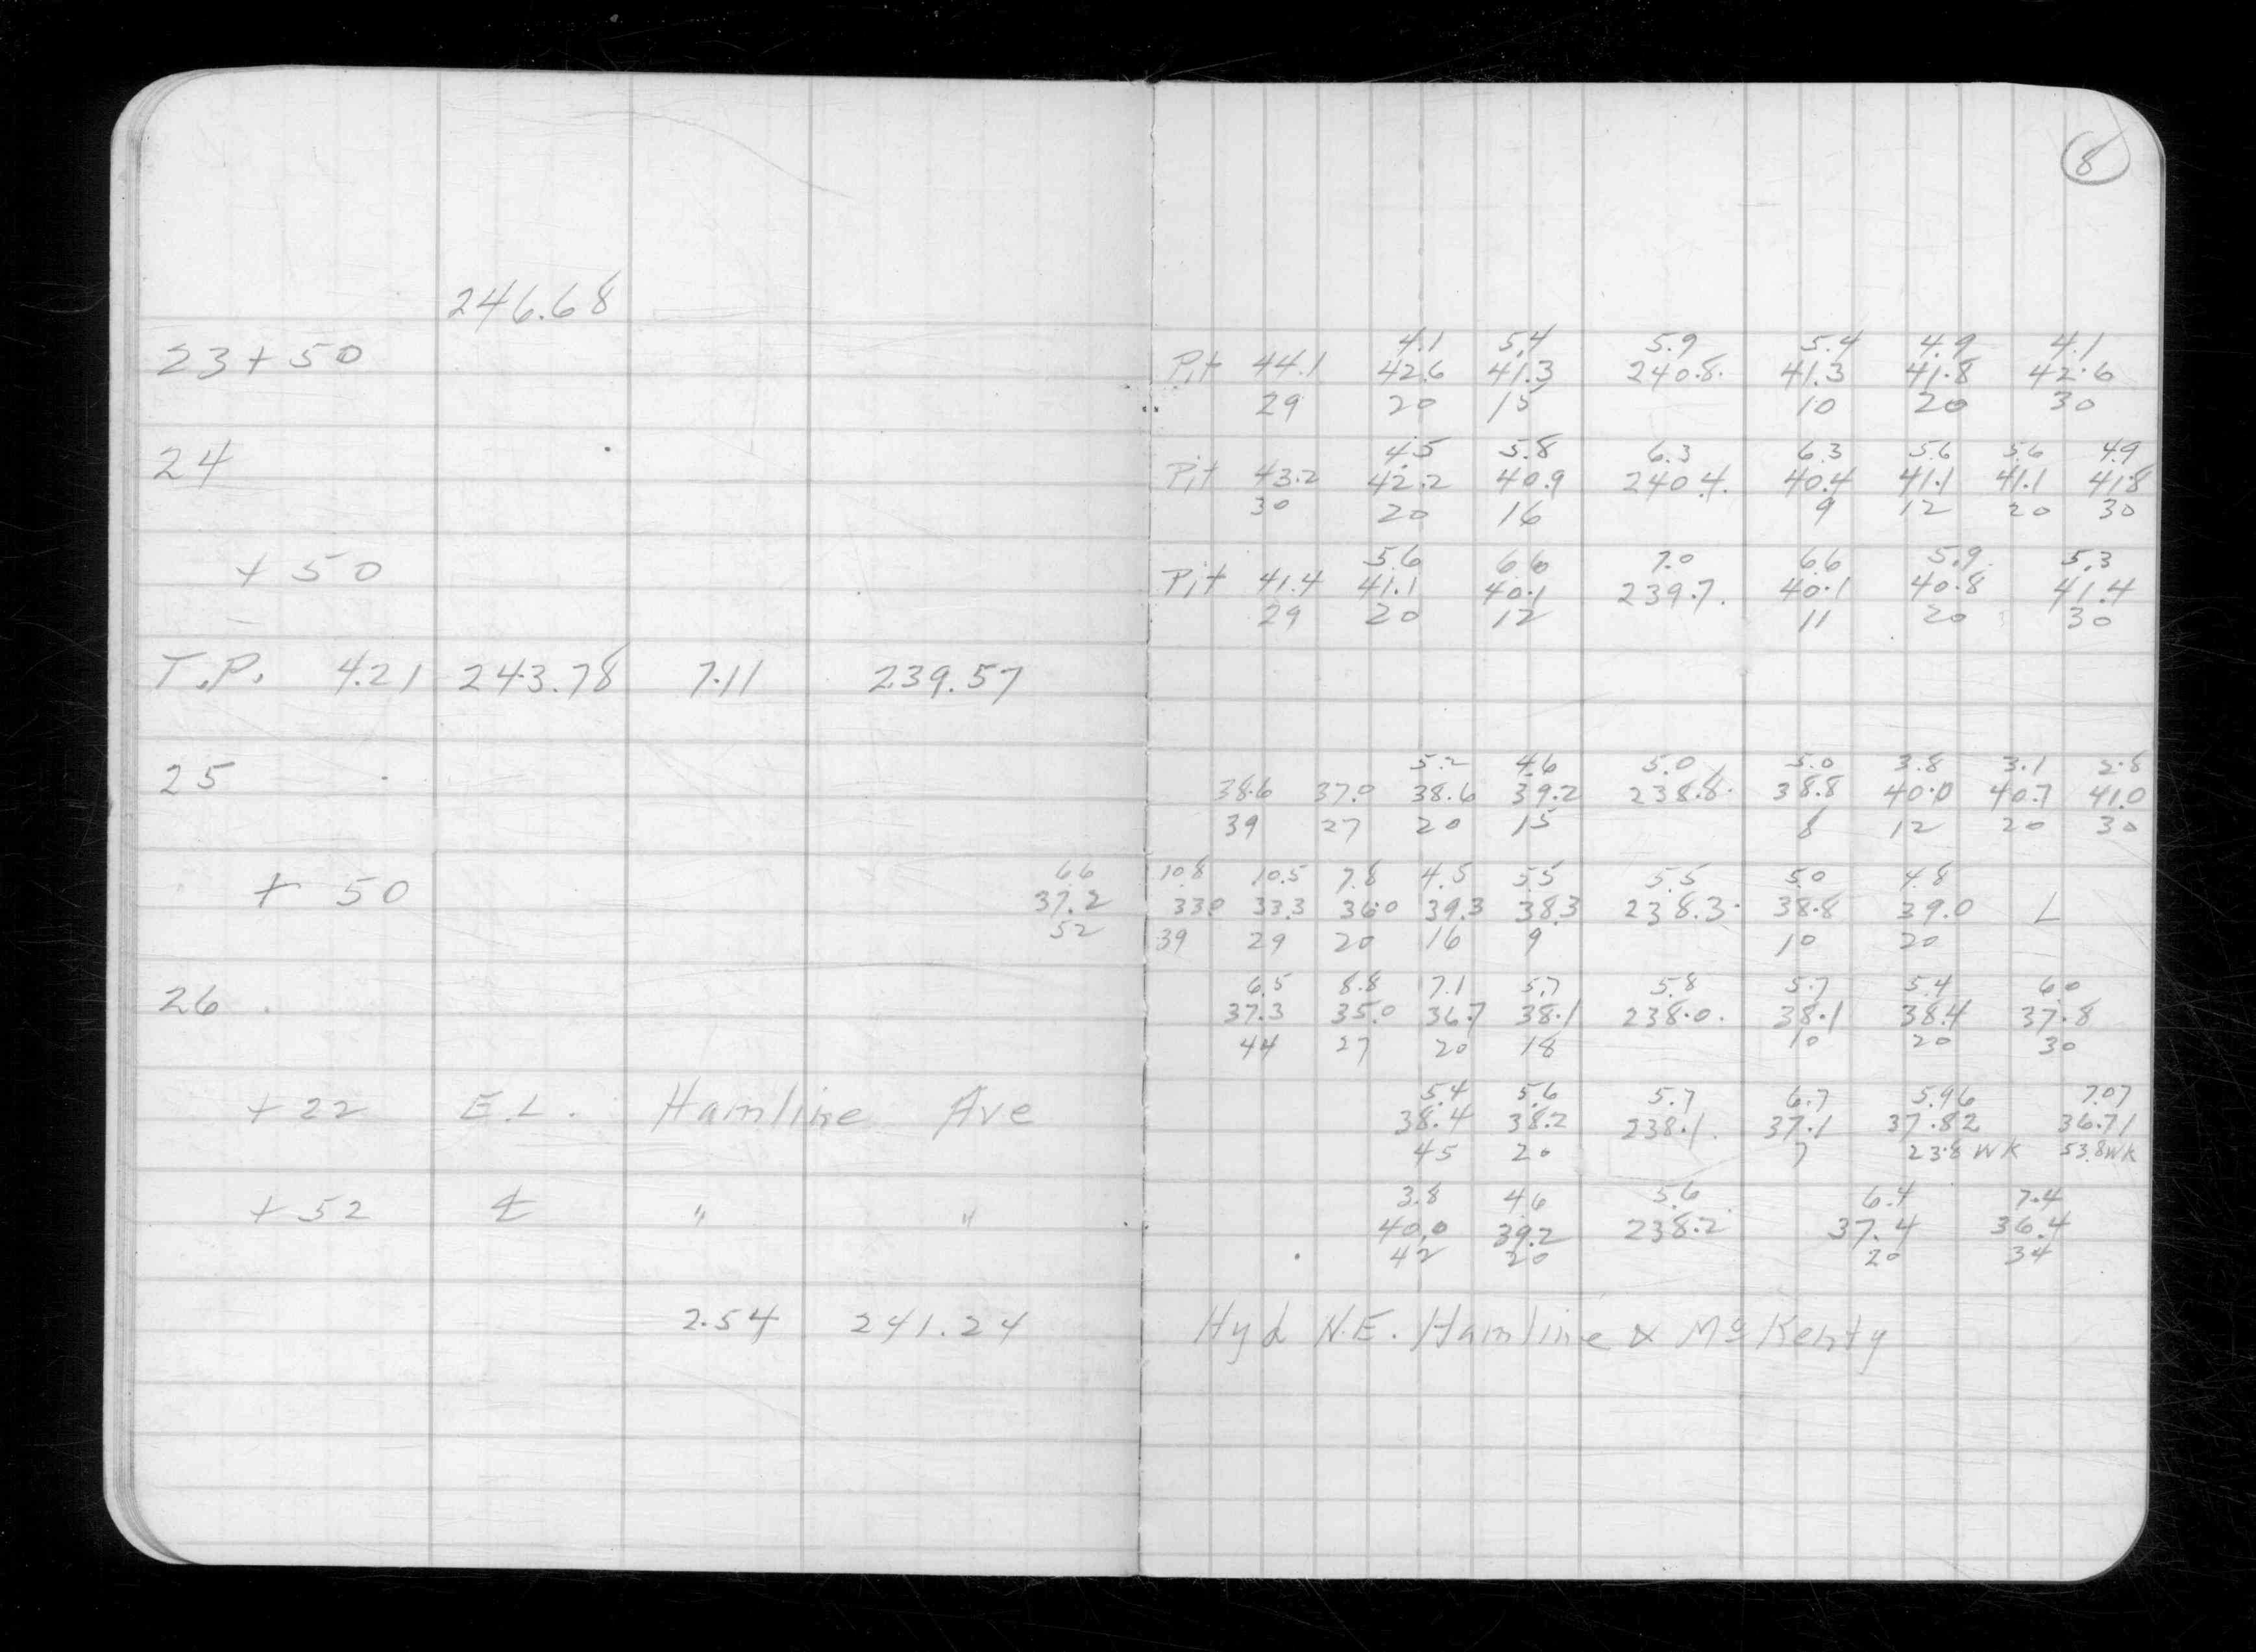 8
246.68
4.1 5.4 5.9 5.4 4.9 4.1
23+50 Pit 44.1 42.6 41.3 240.8. 41.3 41.8 42.6
29 20 15 10 20 30
4.5 5.8 6.3 6.3 5.6 5.6 4.9
24 Pit 43.2 42.2 40.9 240.4. 40.4 41.1 41.1 41.8
30 20 16 9 12 20 30
5.6 6.6 7.0 6.6 5.9 5.3
+50 Pit 41.4 41.1 40.1 239.7. 40.1 40.8 41.4
29 20 12 11 20 30
T.P. 4.21 243.78 7.11 239.57
5.2 4.6 5.0 5.0 3.8 3.1 2.8
25 38.6 37.0 38.6 39.2 238.8. 38.8 40.0 40.7 41.0
39 27 20 15 8 12 20 30
6.6 10.8 10.5 7.8 4.5 5.5 5.5 5.0 4.8
+50 37.2 33.0 33.3 36.0 39.3 38.3 238.3. 38.8 39.0 L
52 39 29 20 16 9 10 20
6.5 8.8 7.1 5.7 5.8 5.7 5.4 6.0
26 37.3 35.0 36.7 38.1 238.0. 38.1 38.4 37.8
44 27 20 18 10 20 30
5.4 5.6 5.7 6.7 5.96 7.07
+22 E.L. Hamline Ave 38.4 38.2 238.1. 37.1 37.82 36.71
45 20 7 23.8 WK 53.8 WK
3.8 4.6 5.6 6.4 7.4
+52 ℄ " " 40.0 39.2 238.2 37.4 36.4
42 20 20 34
2.54 241.24 Hyd N.E. Hamline & Mc Kenty